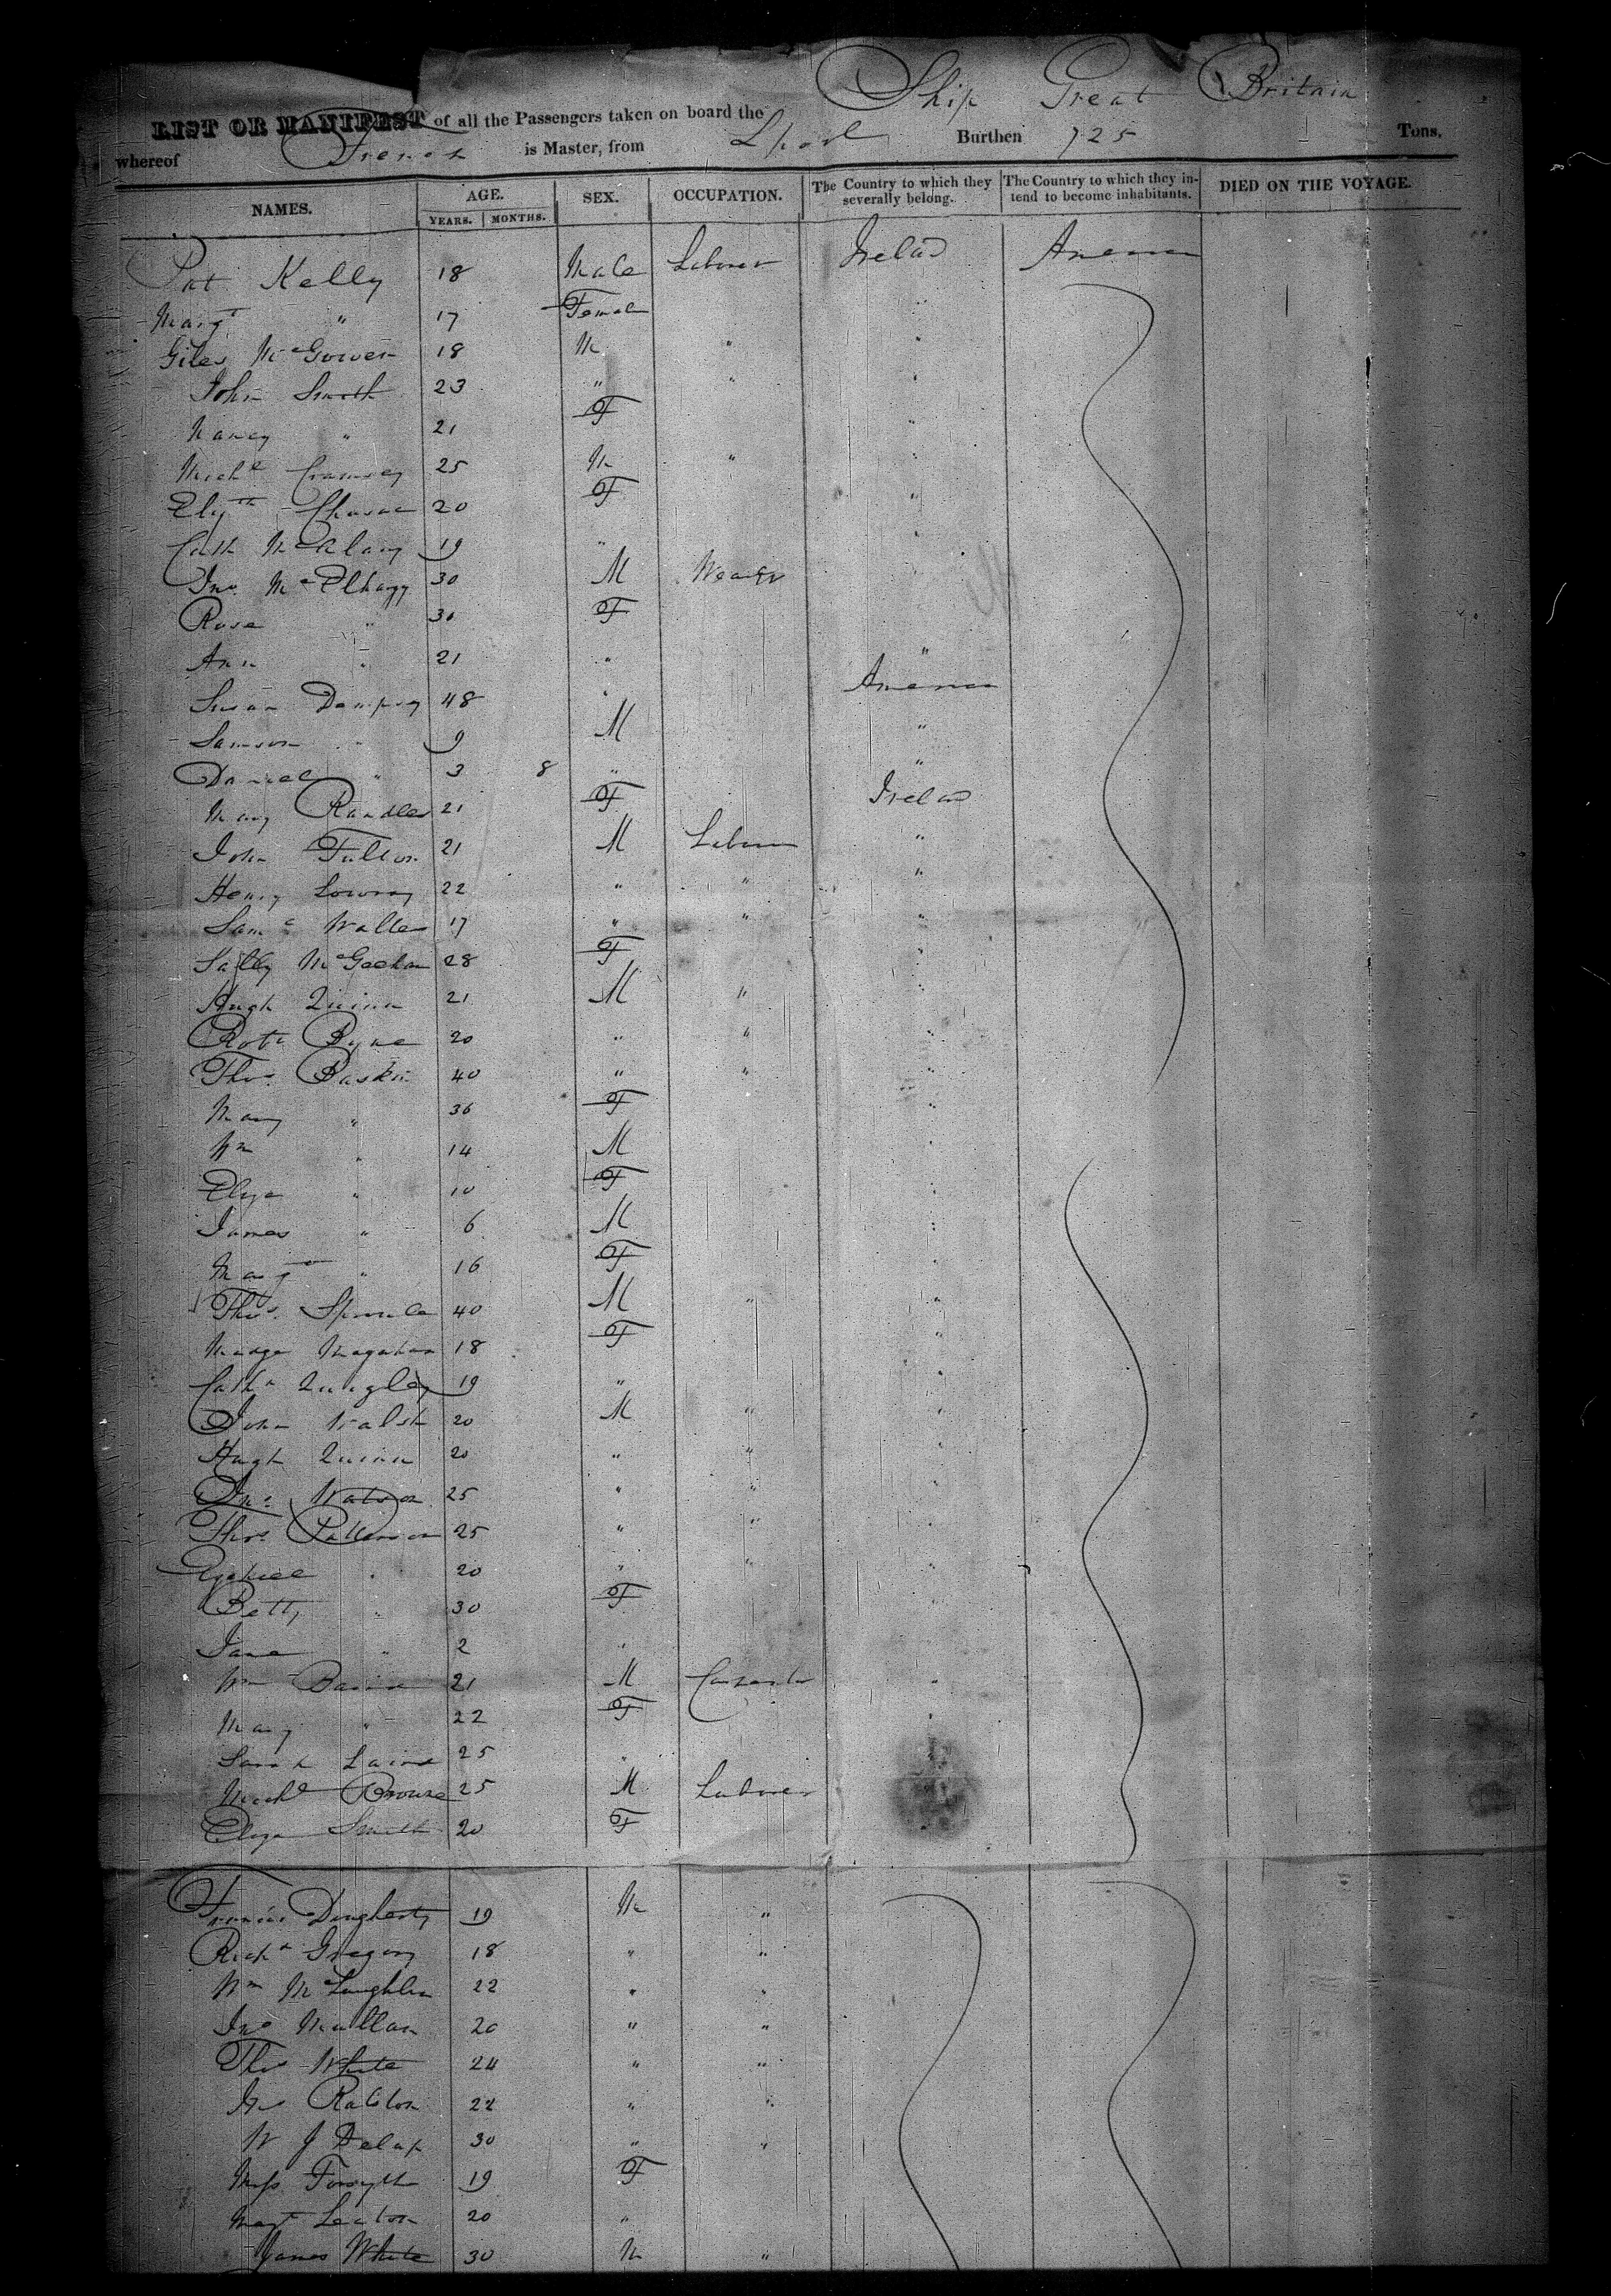 Ship Great Britain
LIST OR MANIFEST of all the Passengers taken on board the
whereof French is Master, from Lpool Burthen 725 Tons.
NAMES. AGE. YEARS. MONTHS. SEX. OCCUPATION. The Country to which they severally belong. The Country to which they intend to become inhabitants. DIED ON THE VOYAGE.
Pat Kelly 18 Male Labourer Ireland America
Margt " 17 Female "
Giles McGowen 18 M " "
John Smith 23 " " "
Nancy " 21 F "
Michl 25 M " "
Elizth 20 F "
Cath 19 " "
Jno. McElhagy 30 M Weaver
Rose " 30 F
Ann " 21 " "
Susan Dempsey 48 " America
Samson " 9 M "
Daniel " 3 8 " "
Mary Randles 21 F Ireland
John Fulton 21 M Labourer "
Henry Lowray 22 " " "
Saml Walker 17 " " "
Sally McGeehan 28 F "
Hugh Quinn 21 M " "
Robt Byrne 20 " " "
Thos. Baskin 40 " " "
Mary " 36 F "
Wm " 14 M "
Eliza " 10 F "
James " 6 M "
Margt " 16 F "
Thos. Sproule 40 M " "
Madge Magahan 18 F "
Cathe Quigley 19 " "
John Walsh 20 M " "
Hugh Quinn 20 " " "
Jno. Watson 25 " " "
Thos Patterson 25 " " "
Ezekiel " 20 " " "
Betty " 30 F
Jane " 2 "
Wm 21 M Carpenter "
Mary " 22 F "
Sarah Laird 25 " "
Michl Browne 25 M Labourer
Eliza Smith 20 F
Francis Dougherty 19 M "
Richd Gregory 18 " "
Wm McLaughlin 22 " "
Jno Mullan 20 " "
Thos White 24 " "
Jno Ralston 22 " "
W J Delap 30 " "
Miss Forsyth 19 F
Margt 20 "
James White 30 M "